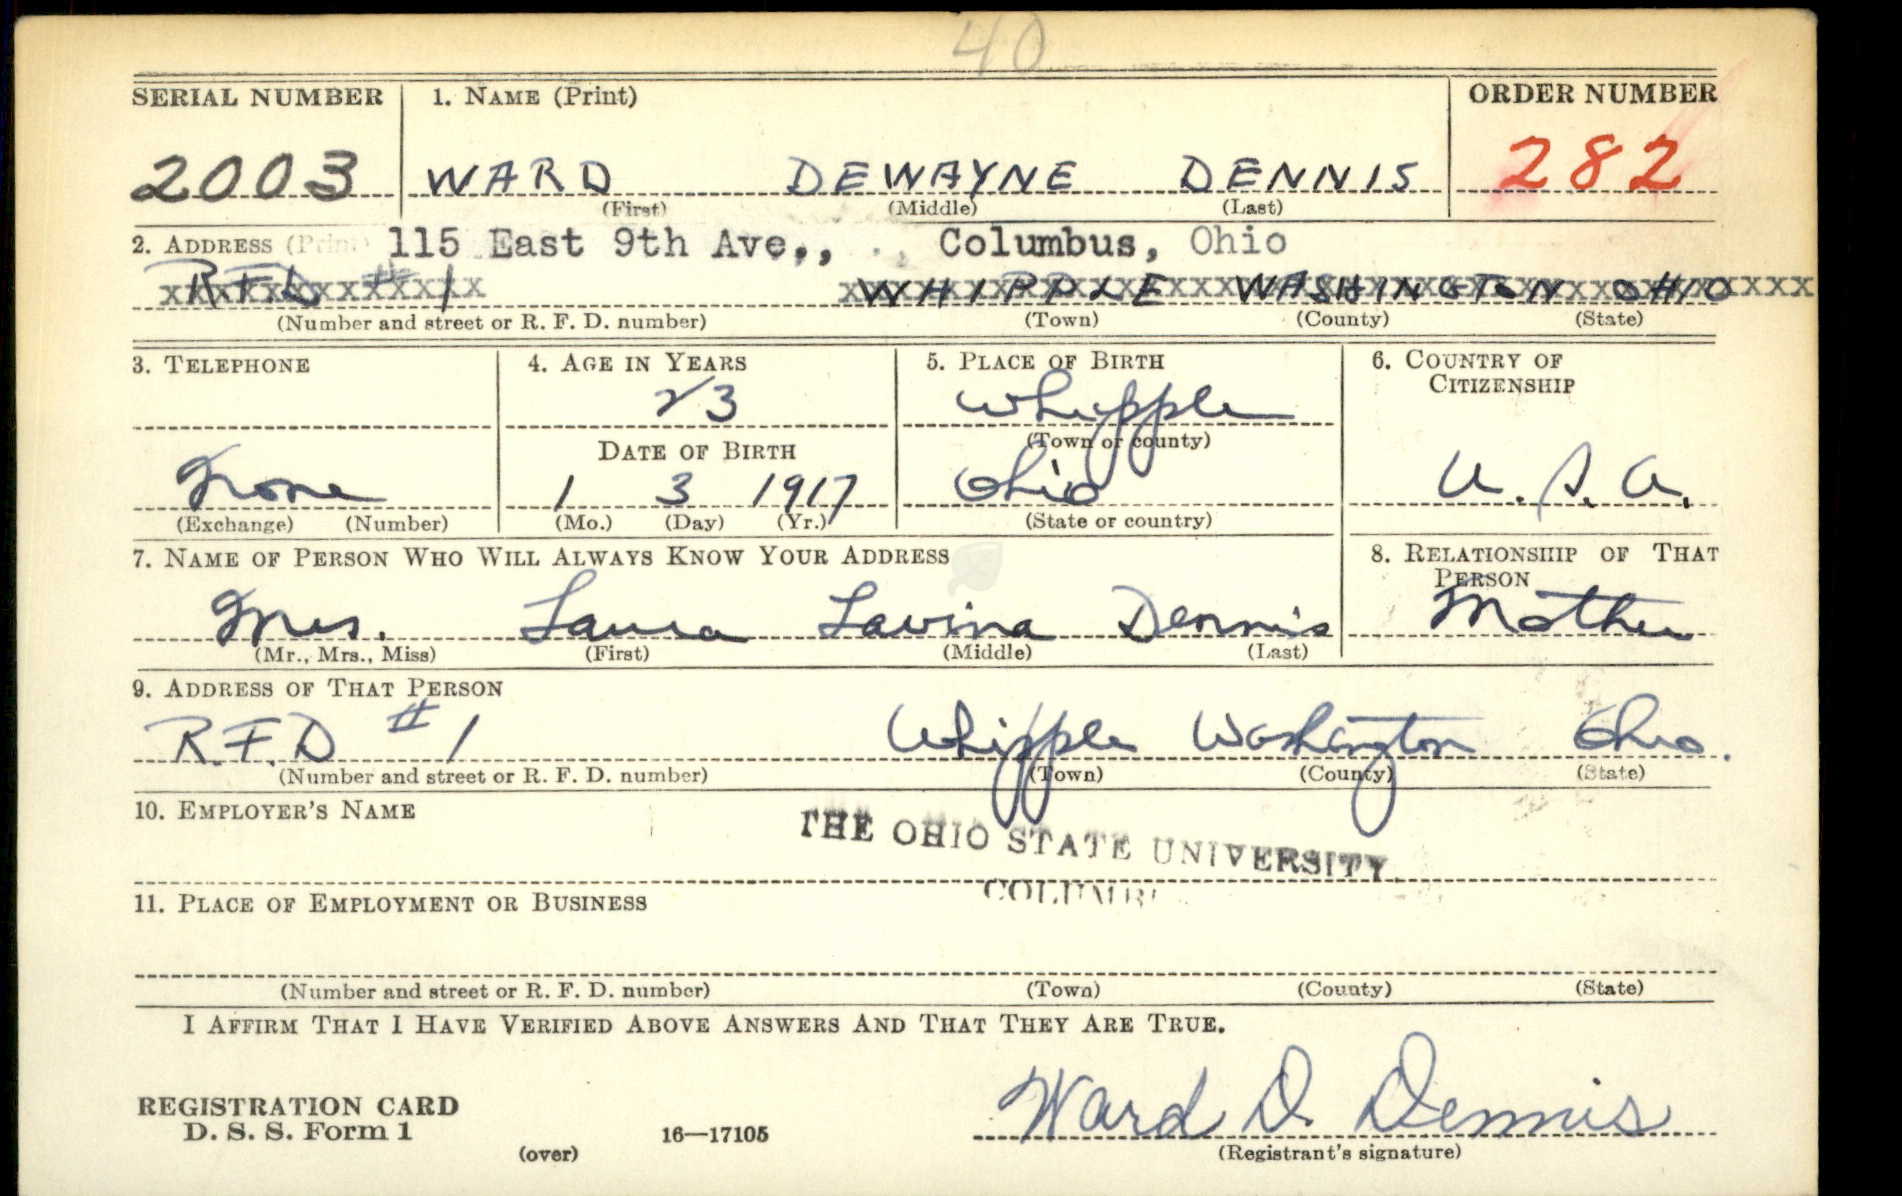 40
SERIAL NUMBER 1. NAME (Print) ORDER NUMBER
2003 WARD DEWAYNE DENNIS 282
(First) (Middle) (Last)
2. ADDRESS (Print) 115 East 9th Ave,, Columbus, Ohio
R.F.D # 1 WHIPPLE WASHINGTON OHIO
(Number and street or R. F. D. number) (Town) (County) (State)
3. TELEPHONE 4. AGE IN YEARS 5. PLACE OF BIRTH 6. COUNTRY OF
CITIZENSHIP
23 Whipple
DATE OF BIRTH (Town or county)
None 1 3 1917 Ohio U.S.A.
(Exchange) (Number) (Mo.) (Day) (Yr.) (State or country)
7. NAME OF PERSON WHO WILL ALWAYS KNOW YOUR ADDRESS 8. RELATIONSHIP OF THAT
PERSON
Mrs. Laura Lavina Dennis Mother
(Mr., Mrs., Miss) (First) (Middle) (Last)
9. ADDRESS OF THAT PERSON
R.F.D # 1 Whipple Washington Ohio.
(Number and street or R. F. D. number) (Town) (County) (State)
10. EMPLOYER'S NAME
THE OHIO STATE UNIVERSITY
11. PLACE OF EMPLOYMENT OR BUSINESS
(Number and street or R. F. D. number) (Town) (County) (State)
I AFFIRM THAT I HAVE VERIFIED ABOVE ANSWERS AND THAT THEY ARE TRUE.
REGISTRATION CARD
D. S. S. Form 1 Ward D. Dennis
(over) 16—17105 (Registrant's signature)